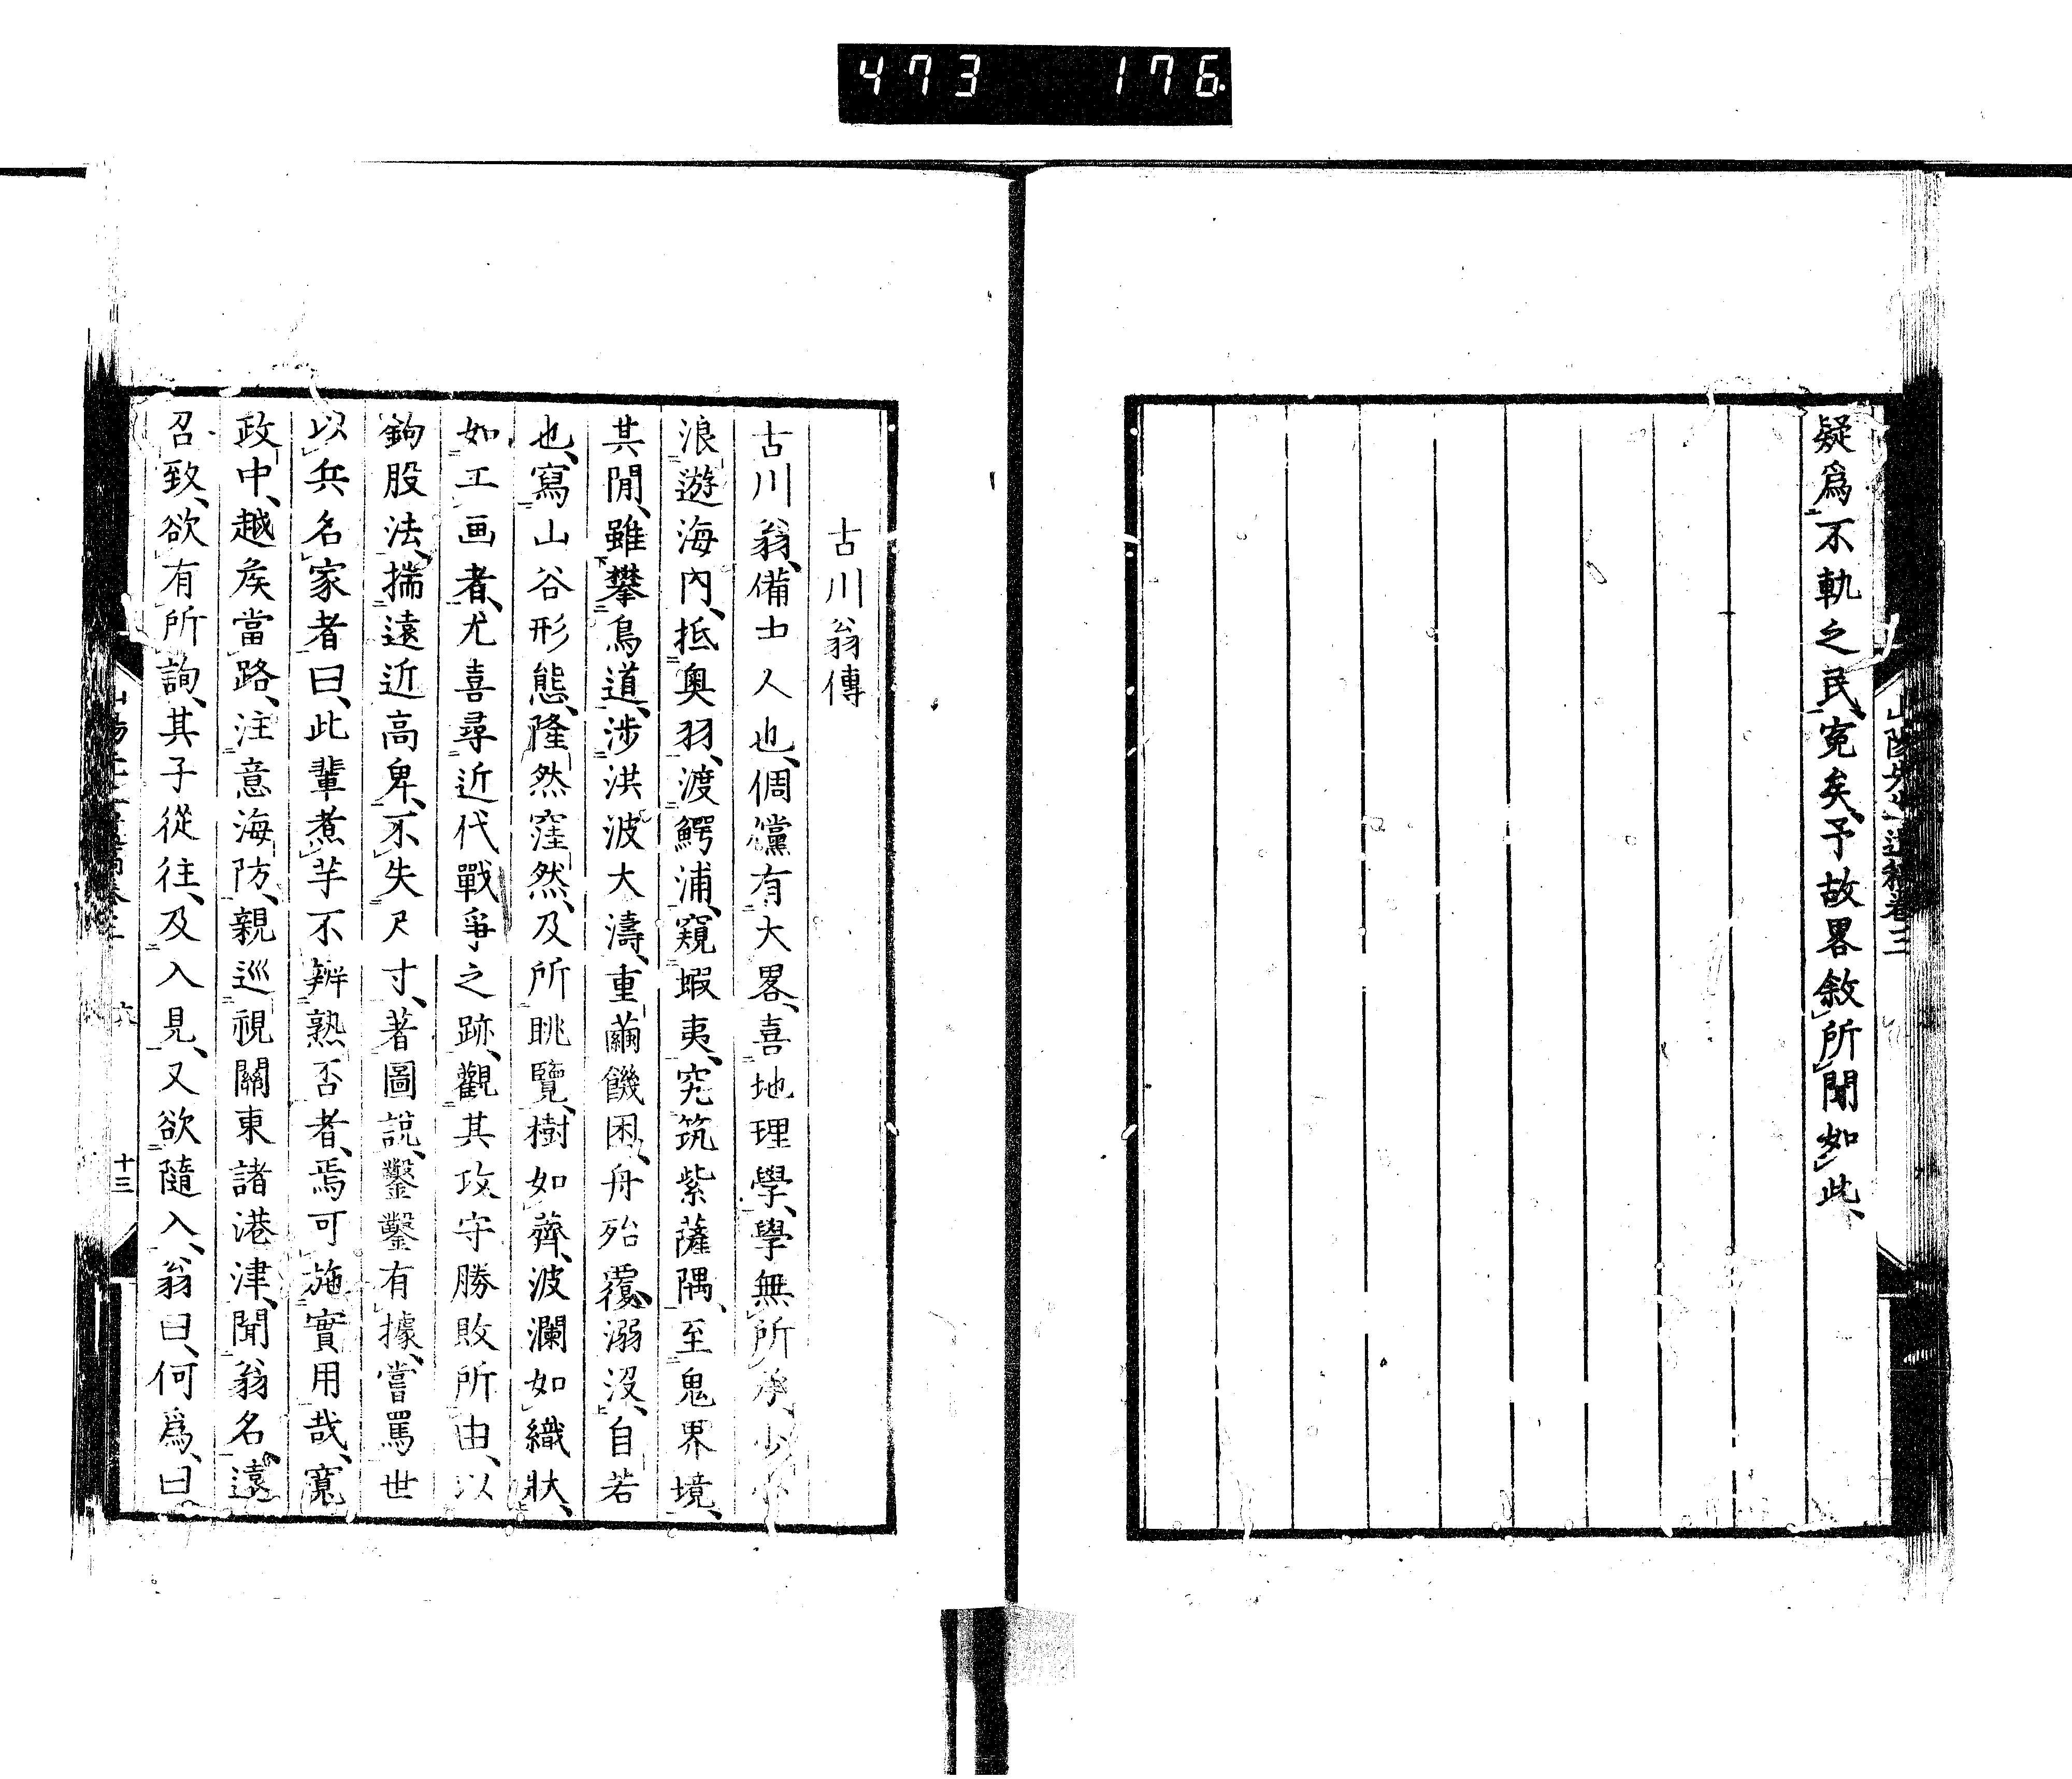 473 176
山陽先生遺稿卷三
疑爲不軌之民、寃矣、予故畧敘所聞如此、
古川翁傳
古川翁、備中人也、倜儻有大畧、喜地理學、學無所承、少小
浪遊海內、抵奥羽、渡鰐浦、窺蝦夷、究筑紫薩隅、至鬼界境、
其閒、雖攀鳥道、涉洪波大濤、重繭饑困、舟殆覆溺沒、自若
也、寫山谷形態、隆然窪然、及所眺覽、樹如薺、波瀾如織狀、
如工画者、尤喜尋近代戰爭之跡、觀其攻守勝敗所由、以
鉤股法、揣遠近高卑、不失尺寸、著圖說、鑿鑿有據、嘗罵世
以兵名家者曰、此輩煮芋不辨熟否者、焉可施實用哉、寬
政中、越矦當路、注意海防、親巡視關東諸港津、聞翁名、遠
召致、欲有所詢、其子從往、及入見、又欲隨入、翁曰、何爲、曰
十三